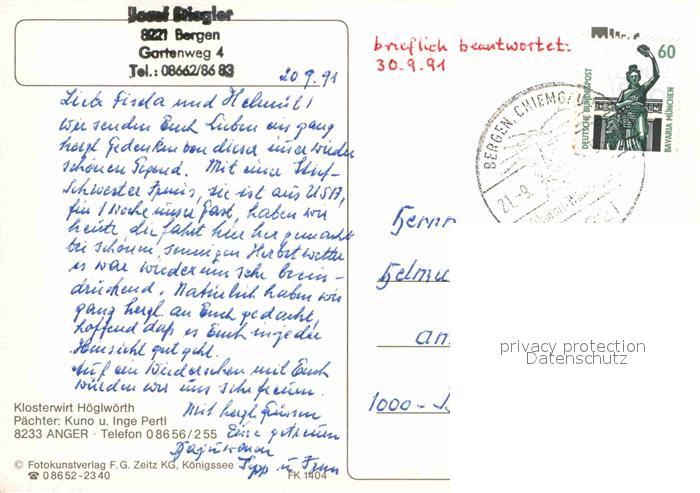 Josef Stiegler
8221 Bergen
Gartenweg 4
Tel.: 08662/86 83
20.9.91
Liebe Gisela und Helmut!
wir senden Euch Lieben ein ganz
herzl. Gedenken von dieser immer wieder
schönen Gegend. Mit einer Stief-
Schwester, sie ist aus USA,
für 1 Woche unser Gast, haben wir
heute die Fahrt hier her gemacht
bei schönem, sonnigen Herbstwetter
es war wiederum sehr beein-
druckend. Natürlich haben wir
ganz herzl. an Euch gedacht,
hoffend daß es Euch in jeder
Hinsicht gut geht.
Auf ein Wiedersehen mit Euch
würden wir uns sehr freuen.
Mit herzl. Grüssen
Eure getreuen
Sepp u.
Klosterwirt Höglwörth
Pächter: Kuno u. Inge Pertl
8233 ANGER · Telefon 0 86 56/2 55
© Fotokunstverlag F. G. Zeitz KG, Königssee
☎ 0 86 52-23 40
FK 1404
brieflich beantwortet:
30.9.91
60
DEUTSCHE BUNDESPOST
BAVARIA MÜNCHEN
BERGEN, CHIEMG
21.-9.
Herrn
Helmu
am
1000-
privacy protection
Datenschutz